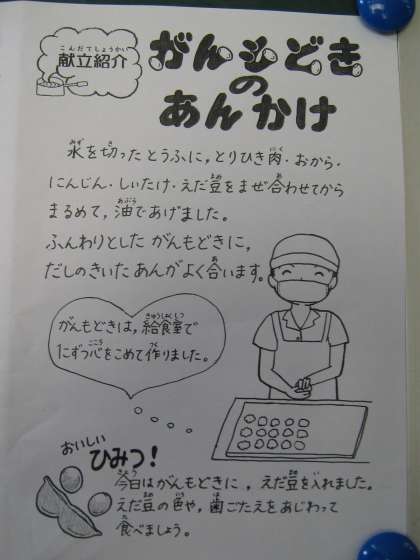 こんだてしょうかい
献立紹介
がんもどき
の
あんかけ
水を切ったとうふに,とりひき肉・おから・
にんじん・しいたけ・えだ豆をまぜ合わせてから
まるめて,油であげました。
ふんわりとした がんもどきに,
だしのきいたあんがよく合います。
がんもどきは,給食室で
1こずつ心をこめて作りました。
おいしい
ひみつ!
今日はがんもどきに,えだ豆を入れました。
えだ豆の色や,歯ごたえをあじわって
食べましょう。